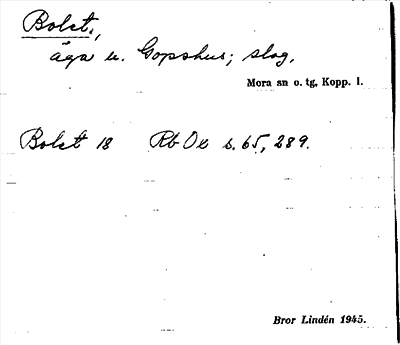 Bolst.,
äga u. Gopshus; slog.
Mora sn o. tg, Kopp. l.
Bolst 18 Rb Oe s. 65, 289.
Bror Lindén 1945.